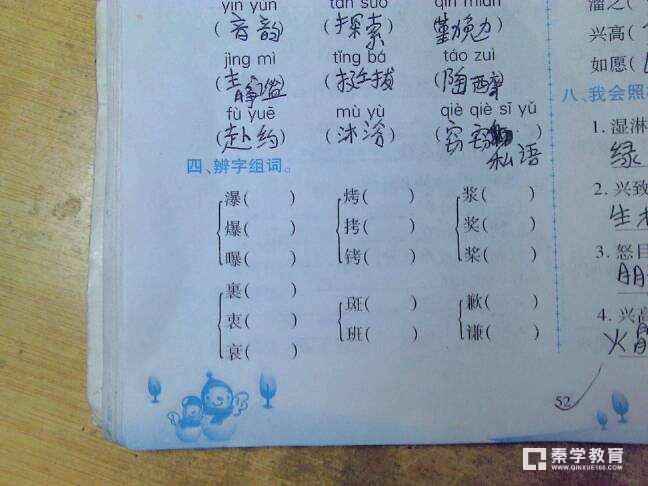 yīn yùn tàn suǒ qín miǎn 溜之(
(音韵) (探索) (勤勉) 兴高(
jìng mì tǐng bá táo zuì 如愿(
(静谧) (挺拔) (陶醉)
fù yuē mù yù qiè qiè sī yǔ 八、我会照
(赴约) (沐浴) (窃窃 )
私语
1. 湿淋
绿
四、辨字组词。
瀑( ) 烤( ) 浆( ) 2. 兴致
爆( ) 拷( ) 奖( ) 生
曝( ) 铐( ) 桨( ) 3. 怒目
裹( )
斑( ) 歉( )
衷( ) 4. 兴高
班( ) 谦( ) 火
衰( )
52
秦学教育
WWW.QINXUE100.COM